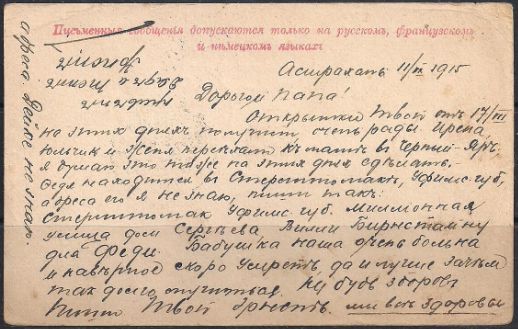 Письменные сообщения допускаются только на русском, французском
и немецком языкахъ
Астрахань 11/IX 1915
Дорогой папа!
Открытки твои отъ 17/VIII
на этихъ дняхъ получили очень рады. Ирена,
Юльчик и Женя переѣхали къ мамѣ въ Черный-Яръ.
Я думаю это тоже на этихъ дняхъ сдѣлать.
Федя находится в Стерлитамакъ, Уфимс. губ,
адреса его я не знаю, пиши такъ:
Стерлитамак Уфимс. губ. Миллионная
улица дом Сергѣева Вилли Бирнстаину
для Феди. Бабушка наша очень больна
и навѣрное скоро умретъ, да и лучше зачѣмъ
так долго мучиться. Ну будь здоровъ
Пиши Твой Эрнстъ. мы всѣ здоровы
адреса
не знаю.